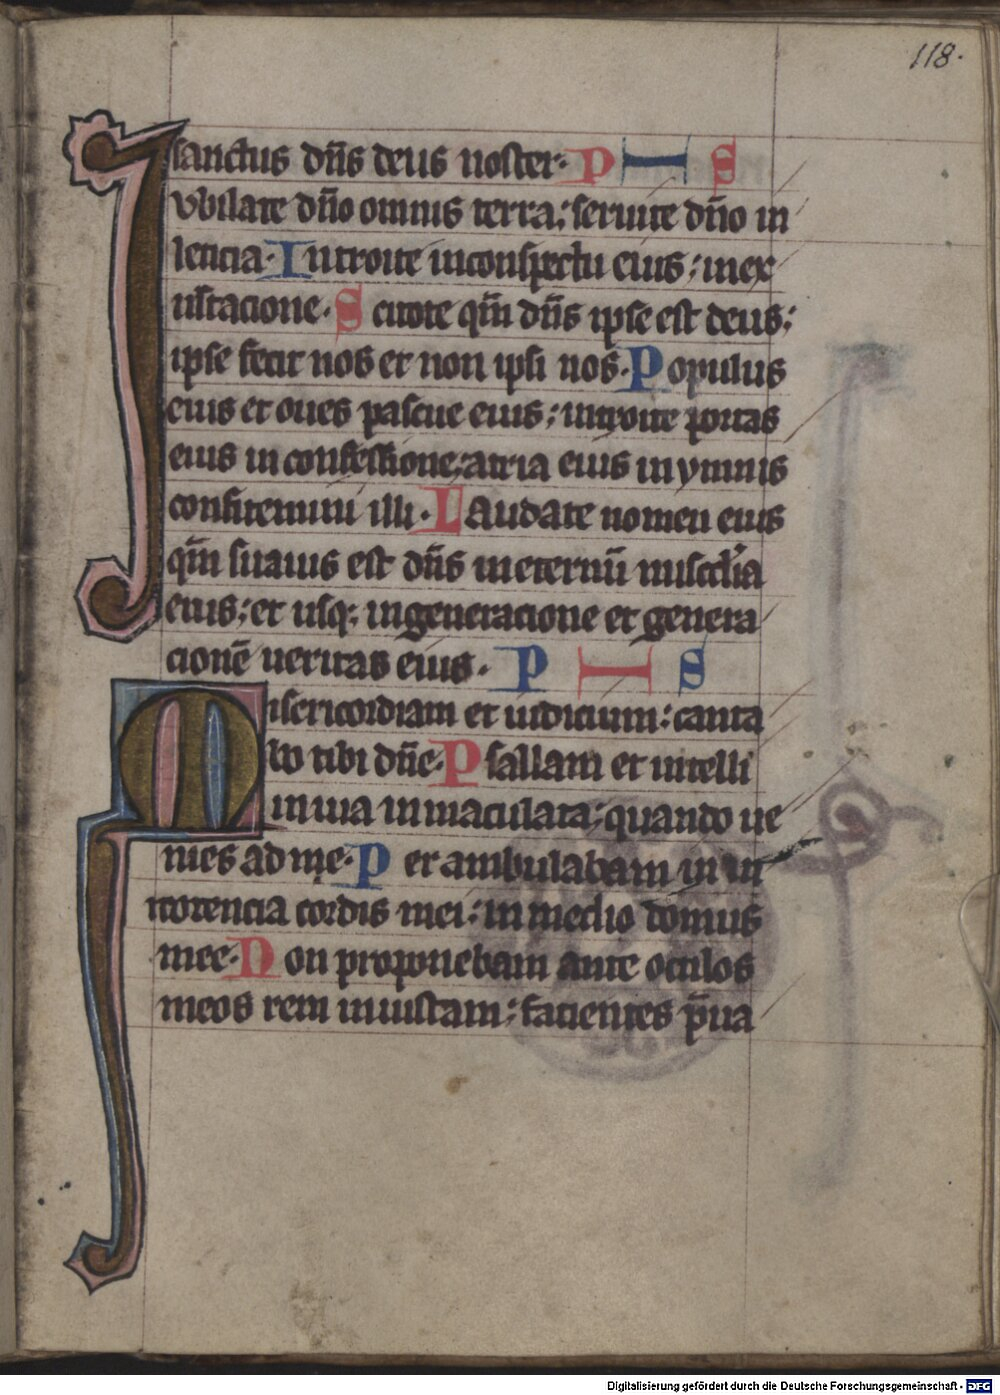 118.
sanctus dn̄s deus noster. P H S
Jvbilate dn̄o omnis terra; seruite dn̄o in
leticia. Introite in conspectu eius; in ex
ultacione. Scitote qm̄ dn̄s ipse est deus;
ipse fecit nos et non ipsi nos. Populus
eius et oues pascue eius; introite portas
eius in confessione; atria eius in ymnis
confitemini illi. Laudate nomen eius
qm̄ suauis est dn̄s in eternū misc̄dia
eius; et usq; in generacione et genera
cionē ueritas eius. P H S
Misericordiam et iudicium: canta
bo tibi dn̄e. Psallam et intelli
in uia inmaculata; quando ue
nies ad me. Perambulabam in in
nocencia cordis mei: in medio domus
mee. Non proponebam ante oculos
meos rem iniustam: facientes p̄ua
Digitalisierung gefördert durch die Deutsche Forschungsgemeinschaft - DFG